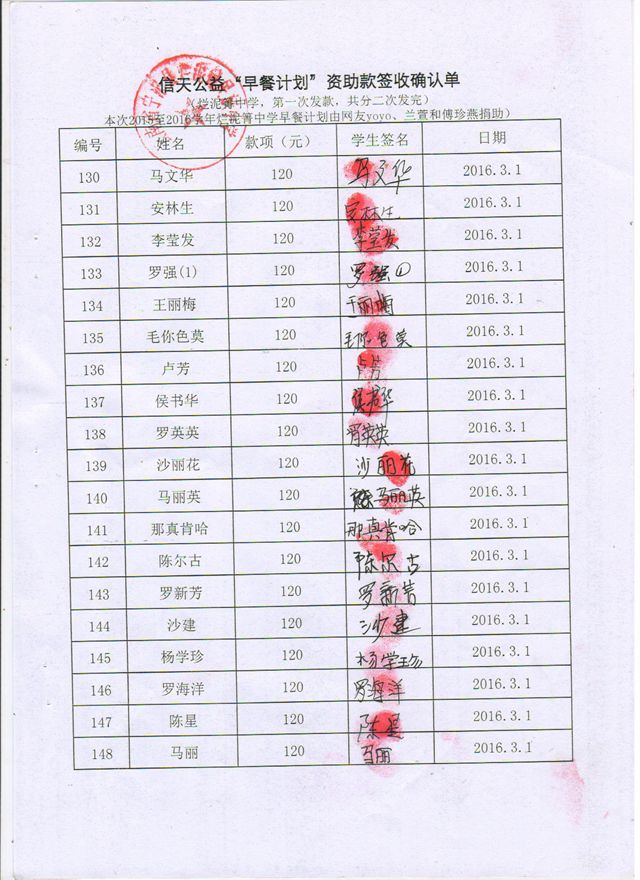 信天公益“早餐计划”资助款签收确认单
（烂泥箐中学，第一次发款，共分二次发完）
本次2015至2016学年烂泥箐中学早餐计划由网友yoyo、兰萱和傅珍燕捐助）
编号 姓名 款项（元） 学生签名 日期
130 马文华 120 马文华 2016.3.1
131 安林生 120 安林生 2016.3.1
132 李莹发 120 李莹发 2016.3.1
133 罗强(1) 120 罗强① 2016.3.1
134 王丽梅 120 王丽梅 2016.3.1
135 毛你色莫 120 毛你色莫 2016.3.1
136 卢芳 120 卢芳 2016.3.1
137 侯书华 120 侯书华 2016.3.1
138 罗英英 120 罗英英 2016.3.1
139 沙丽花 120 沙丽花 2016.3.1
140 马丽英 120 马丽英 2016.3.1
141 那真肯哈 120 那真肯哈 2016.3.1
142 陈尔古 120 陈尔古 2016.3.1
143 罗新芳 120 罗新芳 2016.3.1
144 沙建 120 沙建 2016.3.1
145 杨学珍 120 杨学珍 2016.3.1
146 罗海洋 120 罗海洋 2016.3.1
147 陈星 120 陈星 2016.3.1
148 马丽 120 马丽 2016.3.1